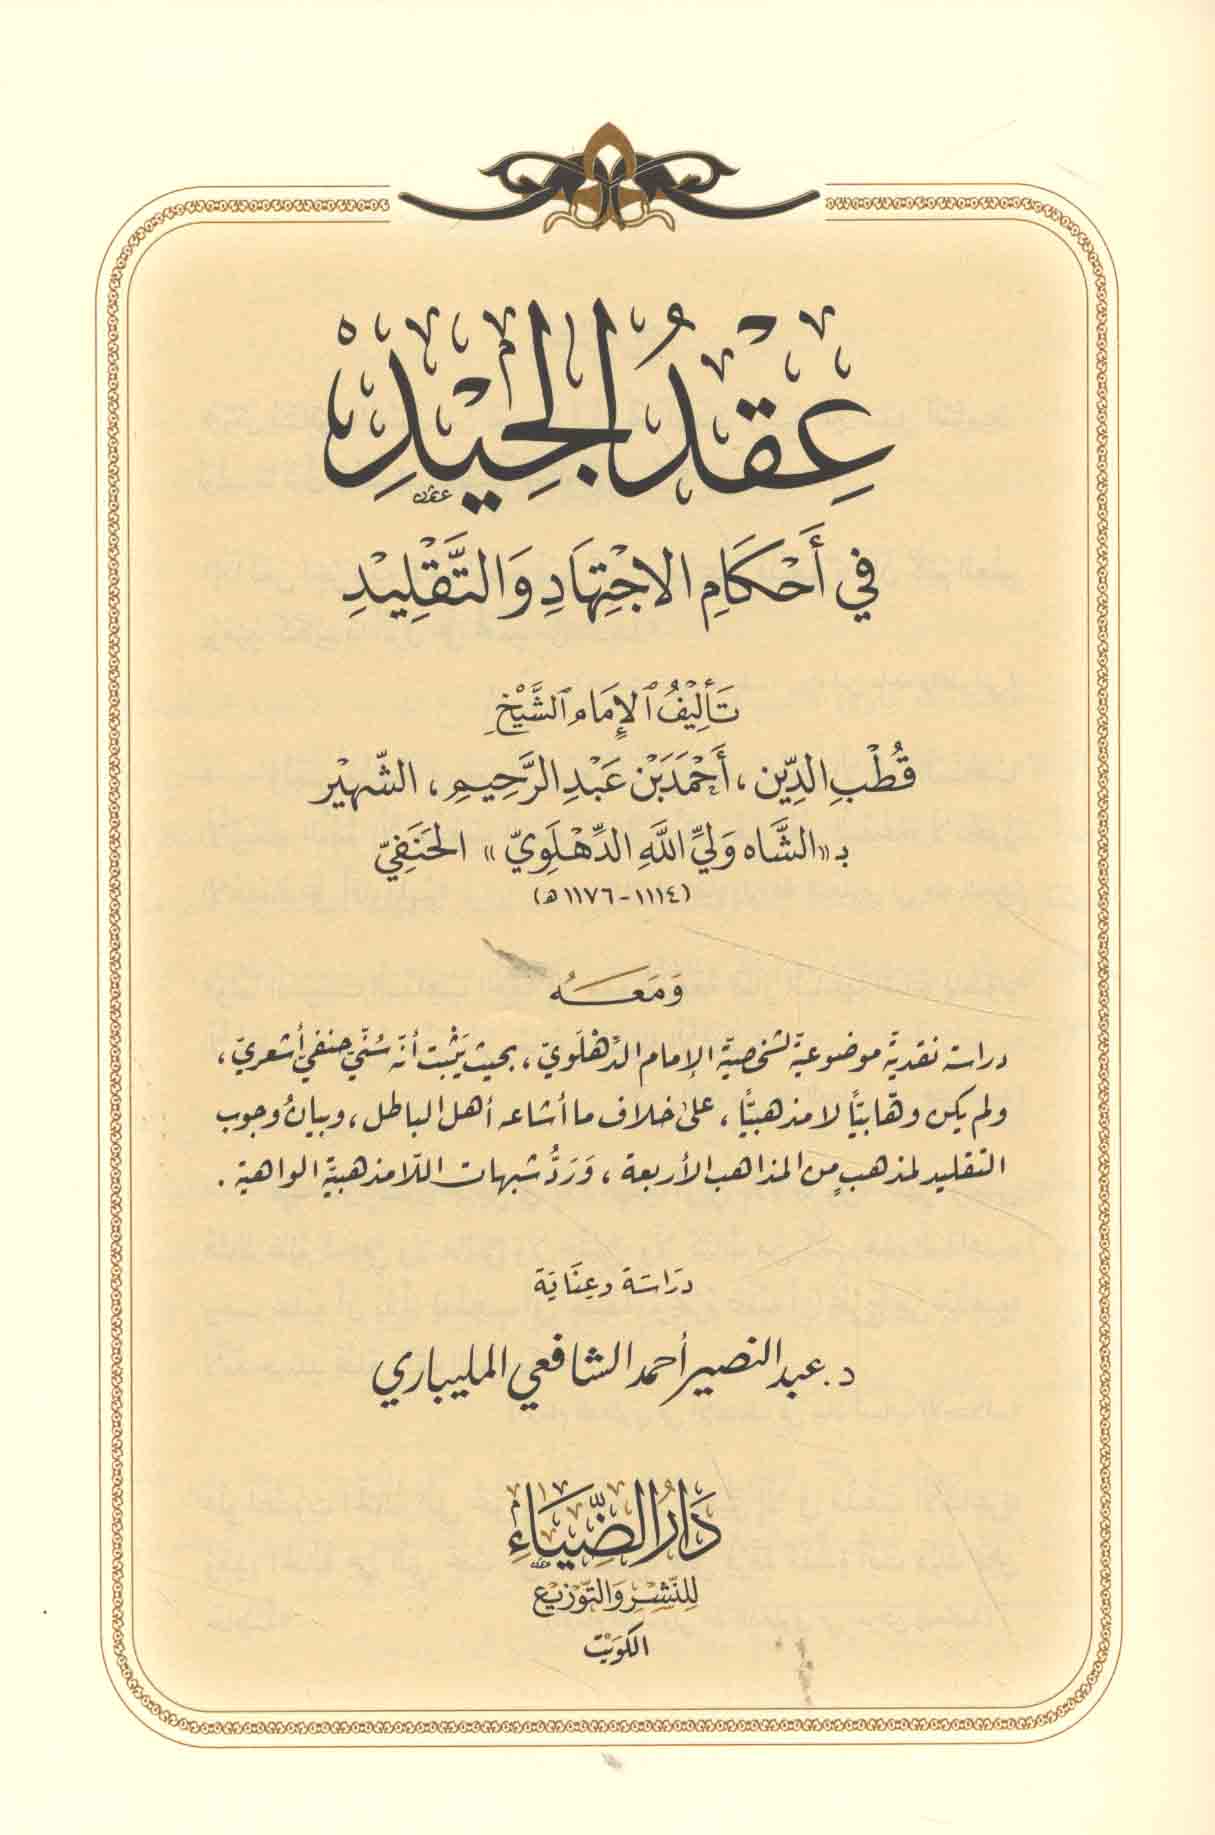 عِقْدُ الجِيْدِ
في أَحْكَامِ الاجْتِهَادِ وَالتَّقْلِيْدِ
تَأليْفُ الإمَام الشَّيْخِ
قُطْبِ الدِّين، أَحْمَدَ بْنِ عَبْدِ الرَّحِيمِ، الشّهِيْر
بـ «الشَّاه وَليِّ اللَّهِ الدِّهْلَوِيّ» الحَنَفِيّ
(١١١٤-١١٧٦هـ)
وَمَعَهُ
دراسة نقدية موضوعية لشخصية الإمام الدهْلَويّ، بحيث يَثْبت أنّه سُنّيّ حنفيّ أشعريّ،
ولم يكن وهّابيًّا لا مذهبيًّا، على خلاف ما أشاعه أهل الباطل، وبيانُ وجوب
التقليد لمذهبٍ من المذاهب الأربعة، وَرَدُّ شبهات اللّامذهبيّة الواهية.
دَرَاسَة وعِنَاية
د. عبد النصير أحمد الشافعي المليباري
دَارُ الضِّيَاءِ
لِلنَّشْرِ وَالتَّوْزِيْع
الكويت